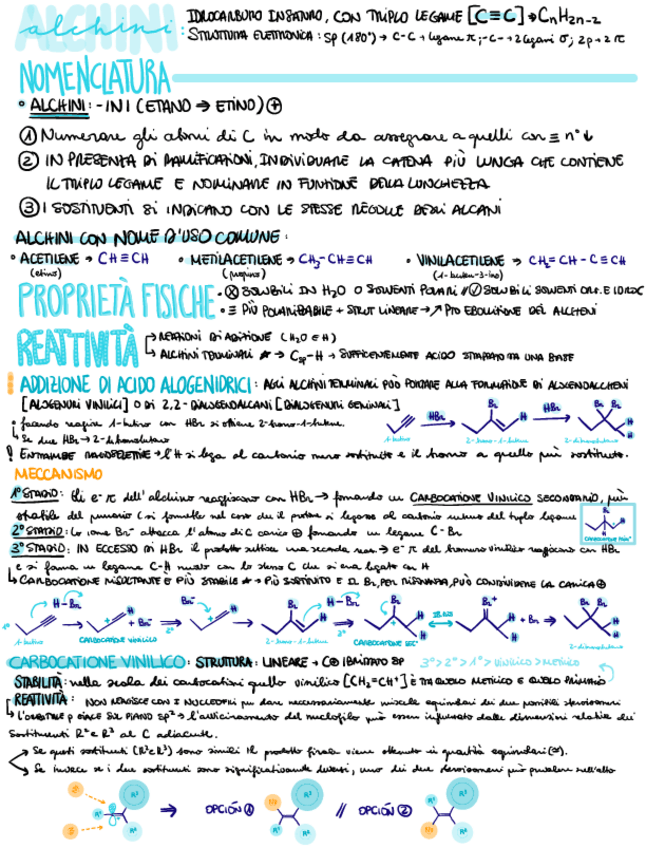 ALCHINI
alchini:
IDROCARBURO INSATURO, CON TRIPLO LEGAME [C≡C] → CnH2n-2
STRUTTURA ELETTRONICA: sp (180°) → C-C + legame π; -C- → 2 legami σ; 2p → 2π
NOMENCLATURA
• ALCHINI: -INI (ETANO → ETINO) ⊕
① Numerare gli atomi di C in modo da assegnare a quelli con ≡ n° ↓
② IN PRESENZA DI RAMIFICAZIONI, INDIVIDUARE LA CATENA PIÙ LUNGA CHE CONTIENE
IL TRIPLO LEGAME E NOMINARE IN FUNZIONE DELLA LUNGHEZZA
③ I SOSTITUENTI SI INDICANO CON LE STESSE REGOLE DEGLI ALCANI
ALCHINI CON NOME D'USO COMUNE:
• ACETILENE → CH≡CH • METILACETILENE → CH3-CH≡CH • VINILACETILENE → CH2=CH-C≡CH
(etino) (propino) (1-buten-3-ino)
PROPRIETÀ FISICHE
• ⊗ SOLUBILI IN H2O O SOLVENTI POLARI // ✓ SOLUBILI SOLVENTI ORG. E IDROC
• ≡ PIÙ POLARIZZABILE + STRUT LINEARE → ↗ PTO EBOLLIZIONE DEL ALCHENI
REATTIVITÀ
→ REAZIONI DI ADIZIONE (H2O E H)
→ ALCHINI TERMINALI → Csp-H → SUFFICENTEMENTE ACIDO STRAPPATO DA UNA BASE
ADDIZIONE DI ACIDO ALOGENIDRICI: AGLI ALCHINI TERMINALI PUÒ PORTARE ALLA FORMAZIONE DI ALOGENOALCHENI
[ALOGENURI VINILICI] O DI 2,2-DIALOGENOALCANI [DIALOGENURI GEMINALI]
facendo reagire 1-butino con HBr si ottiene 2-bromo-1-butene.
Se due HBr → 2-dibromobutano
HBr HBr
Br Br Br H H H
1-butino 2-bromo-1-butene 2-dibromobutano
! ENTRAMBE REGIOSELETTIVE → l'H si lega al carbonio meno sostituito e il bromo a quello più sostituito.
MECCANISMO
1° STADIO: Gli e⁻ π dell'alchino reagiscono con HBr → formando un CARBOCATIONE VINILICO SECONDARIO, più
stabile del primario
2° STADIO: Lo ione Br⁻ attacca l'atomo di C carico ⊕ formando un legame C-Br
3° STADIO: IN ECCESSO DI HBr il prodotto subisce una seconda reaz. → e⁻ π del bromuro vinilico reagiscono con HBr
e si forma un legame C-H nuovo con lo stesso C che si era legato con H
↳ CARBOCATIONE RISULTANTE È PIÙ STABILE → PIÙ SOSTITUITO E IL Br, PER RISONANZA, PUÒ CONDIVIDERE LA CARICA ⊕
1° H-Br + Br⁻ 2° Br⁻ H-Br 3° + Br⁻
1-butino CARBOCATIONE VINILICO 2-bromo-1-butene CARBOCATIONE SEC° 2-dibromobutano
CARBOCATIONE VINILICO: STRUTTURA: LINEARE → C⊕ IBRIDATO SP 3°>2°>1°>VINILICO>METILICO
STABILITÀ: nella scala dei carbocationi quello vinilico [CH2=CH⁺] È TRA QUELLO METILICO E QUELLO PRIMARIO
REATTIVITÀ: NON REAGISCE CON I NUCLEOFILI per dare necessariamente miscele equimolari dei due possibili stereoisomeri
↳ L'ORBITALE P GIACE SUL PIANO SP² → l'avvicinamento del nucleofilo può essere influenzato dalle dimensioni relative dei
Sostituenti R² e R³ al C adiacente.
Se questi sostituenti (R² e R³) sono simili il prodotto finale viene ottenuto in quantità equimolari (≈).
Se invece se i due sostituenti sono significativamente diversi, uno dei due stereoisomeri può prevalere sull'altro
⇒ OPCIÓN ① // OPCIÓN ②
R³ R¹ R² Nu R³ R¹ R² R¹ R³ Nu R²